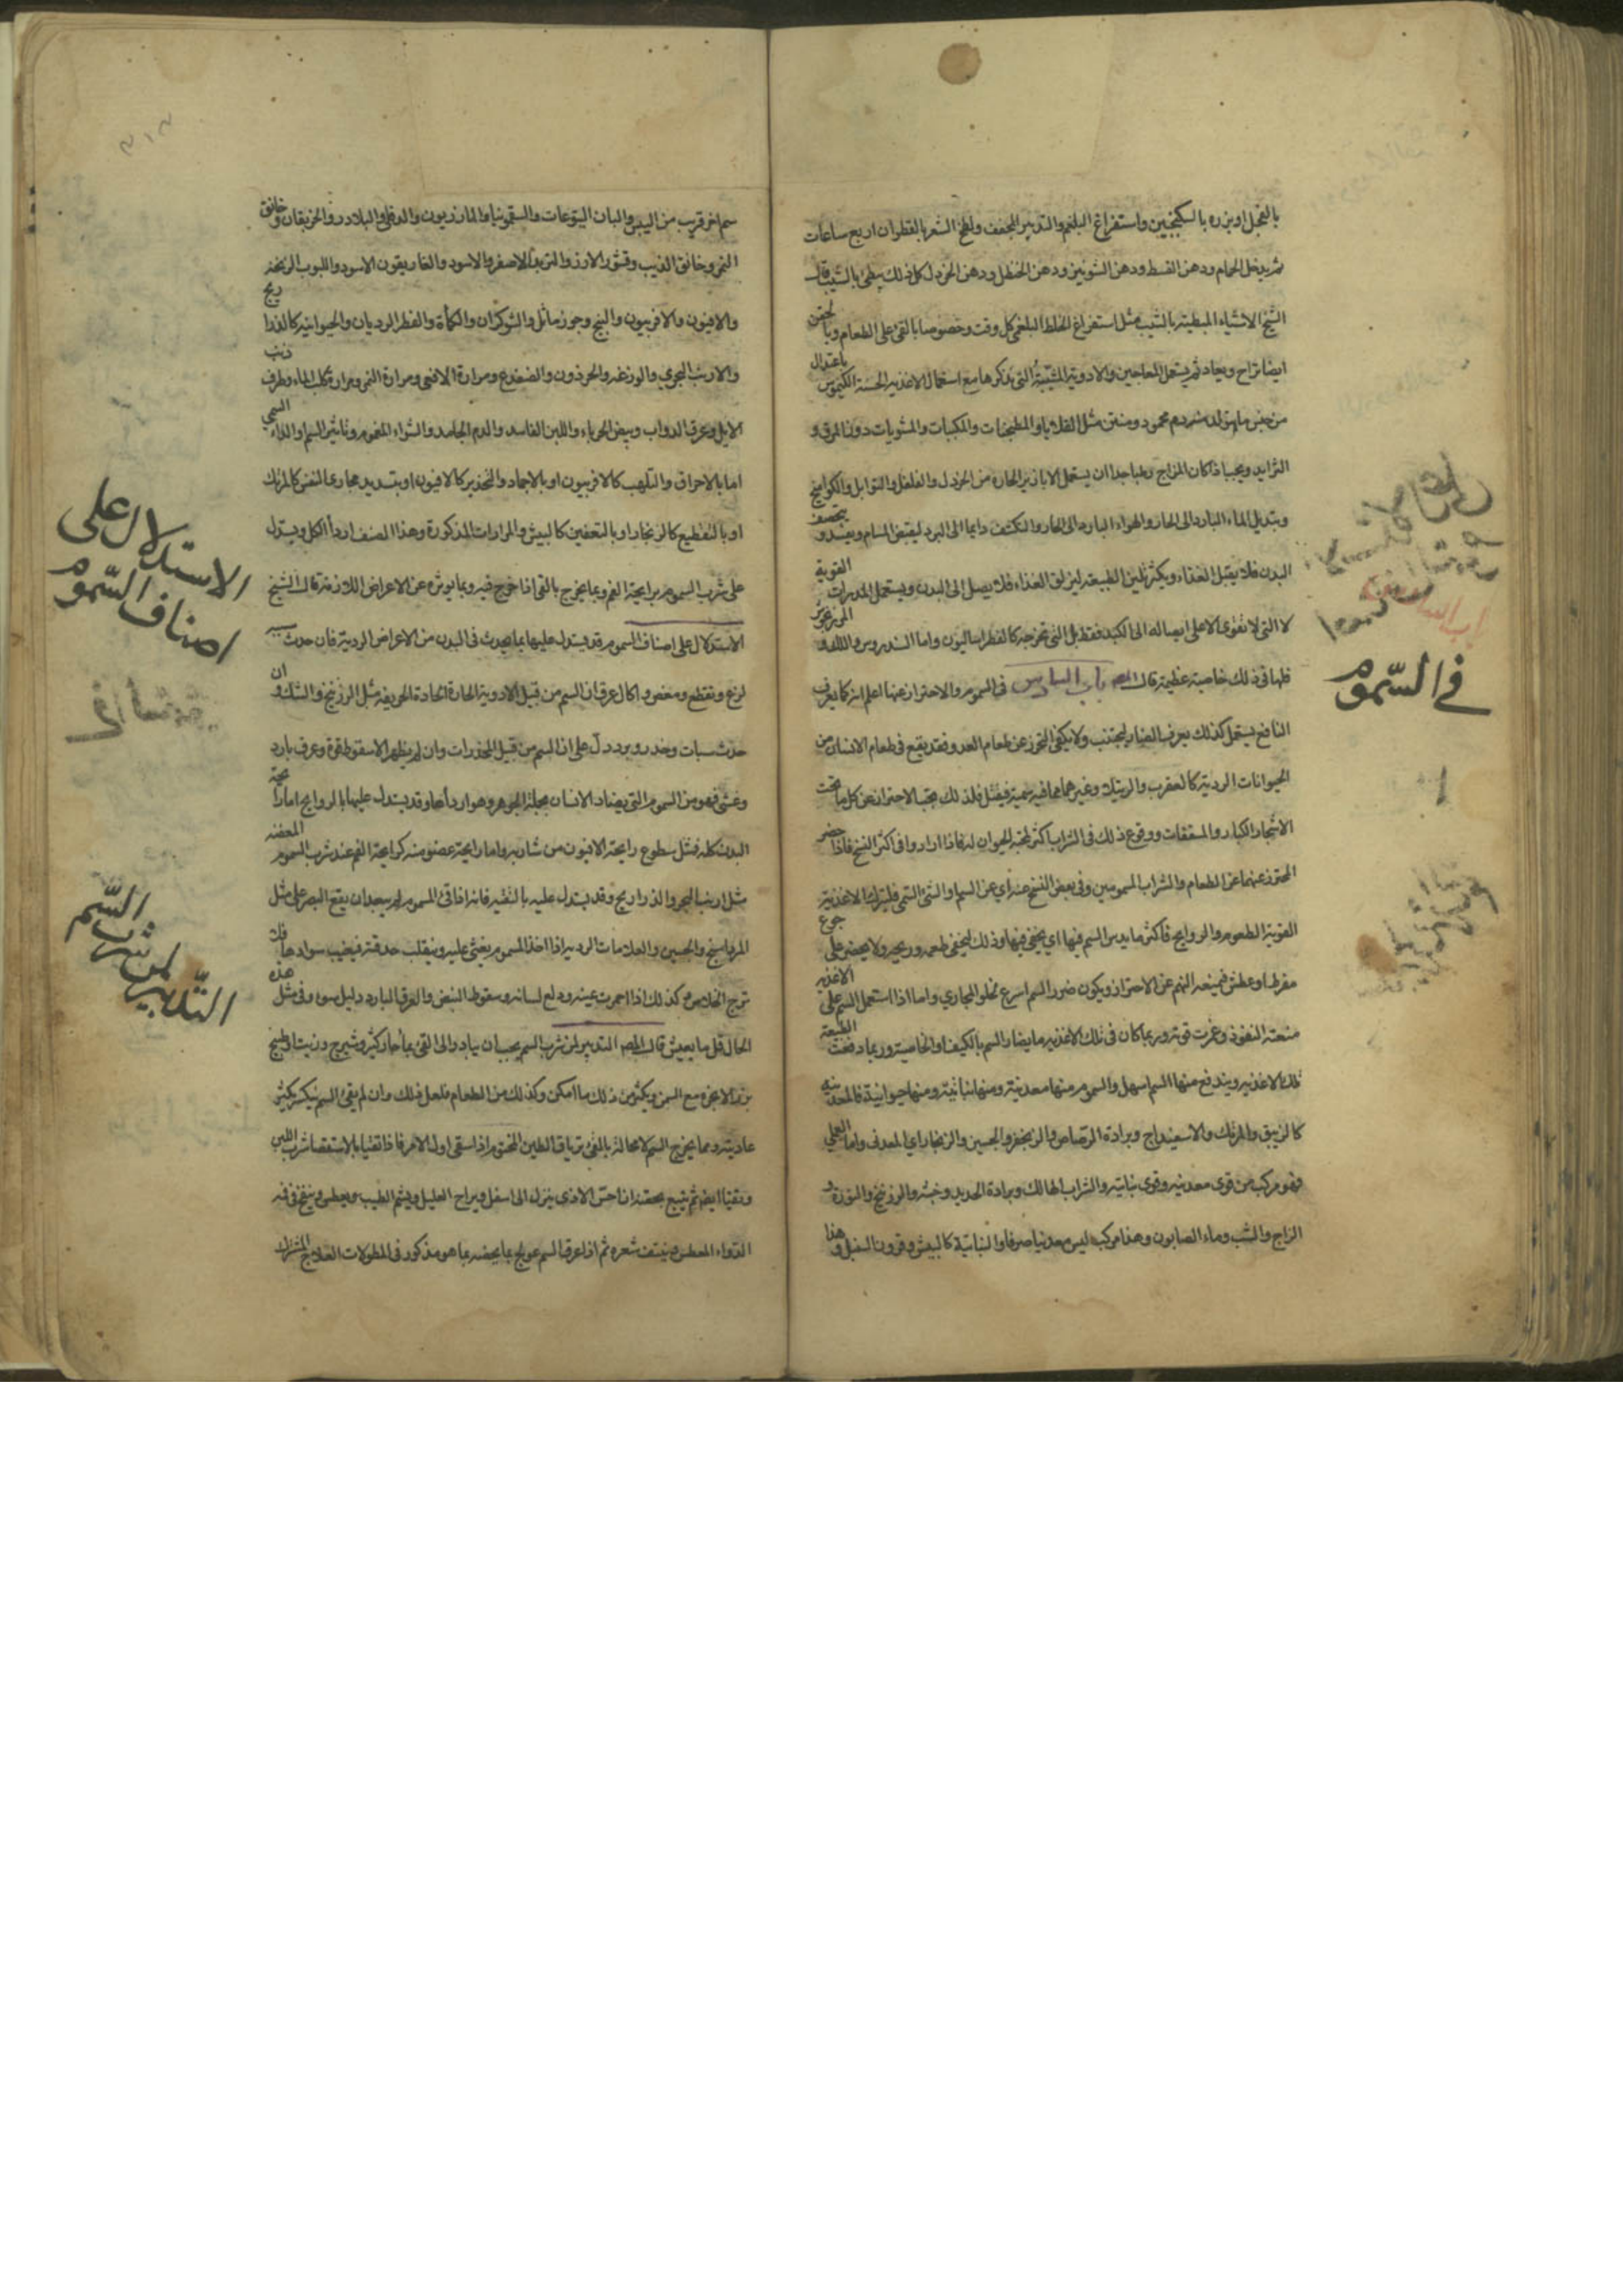 بالفجل او بزره بالسكنجبين واستفراغ البلغم والتدبير المجفف ولطخ الشعر بالقطران اربع ساعات
ثم يدخل الحمام ودهن القسط ودهن الشونيز ودهن الحنظل ودهن الخردل كل ذلك يبطئ بالشيب قال
الشيخ الاشياء المبطية بالشيب مثل استفراغ الخلط البلغمي كل وقت وخصوصا بالقئ على الطعام وبالحقن
ايضا تراح ويعاد ثم يستعمل المعاجين والادوية المشيبة التي نذكرها مع استعمال الاغذية الحسنة الكيموس باعتدال
من جنس ما يتولد منه دم محمود ومتين مثل القلايا والمطجنات والمكببات والمشويات دون المرق و
الثرايد ويجب اذا كان المزاج رطبا جدا ان يستعمل الابازير الحارة من الخردل والفلفل والتوابل والكوامخ
وتبديل الماء البارد الى الحار والهواء البارد الى الحار والتكشف دايما الى البرد ليقبض المسام
البدن فلا يقبل الغذاء ويكثر تليين الطبيعة ليزلق الغذاء فلا يصل الى البدن ويستعمل المدرات القوية
لا التي لا تقوى الا على ايصاله الى الكبد فقط بل التي تخرجه كالفطراساليون واما السندروس واللك و
فلها في ذلك خاصية عظيمة قال المص باب السادس في السموم والاحتراز عنها اعلم انه كما يعرف
النافع ليستعمل كذلك يعرف الضار ليجتنب ولا يكفي التحرز عن طعام العدو فقد يقع في طعام الانسان من
الحيوانات الردية كالعقرب والرتيلا وغيرهما مما فيه سمية فيقتل فلذلك يجب الاحتراز عن كل ما تحت
الاشجار الكبار والمسقفات ووقوع ذلك في الشراب اكثر لمحبة الحيوان له فاذا ارادوا في اكثر النسخ فاذا حضر
المحترز عنهما عن الطعام والشراب المسمومين وفي بعض النسخ عنه اي عن السم او الشئ السمي فليترك الاغذية
القوية الطعوم والروايح فاكثر ما يدس السم فيها اي يخفى فيها وذلك ليخفى طعمه وريحه ولا يحضر على جوع
مفرط او عطش فيمنعه النهم عن الاحتراز ويكون ضرر السم اسرع لخلو المجاري واما اذا استعمل السم على الاغذية
منعته النفوذ وغمرت قوته وربما كان في تلك الاغذية ما يضاد السم بالكيفية او الخاصية وربما دفعت الطبيعة
تلك الاغذية ويندفع منها السم اسهل والسموم منها معدنية ومنها نباتية ومنها حيوانية فالمعدنية
كالزيبق والمرتك والاسفيداج وبرادة الرصاص والزنجفر والجبسين والزنجار اي المعدنى واما العملي
فهو مركب من قوى معدنية وقوى نباتية والشراب الهالك وبرادة الحديد وخبثه والزرنيخ والنورة و
الزاج والشب وماء الصابون وهذا مركب ليس معدنيا صرفا والنباتية كالبيش وقرون السنبل وهذا
في السّموم
سم اخر قريب من البيش والبان اليتوعات والسقمونيا والمازريون والدفلى والبلادر والخربقان وخانق
النمر وخانق الذيب وقشور الارز والتربد الاصفر والاسود والغاريقون الاسود واللبوب الزنخة
والافيون والافربيون والبنج وجوز ماثل والشوكران والكمأة والفطر الرديان والحيوانية كالذراريح
والارنب البحري والوزغة والحرذون والضفدع ومرارة الافعى ومرارة النمر ومرارة كلب الماء وطرف ذنب
الايل وعرق الدواب وبيض الحرباء واللبن الفاسد والدم الجامد والشواء المغموم وتاثير السم او الدواء السمي
اما بالاحراق والتلهب كالافربيون او بالاجماد والتخدير كالافيون او بتسديد مجاري النفس كالمرتك
او بالتقطيع كالزنجار او بالتعفين كالبيش والمرارات المذكورة وهذا الصنف اردأ الكل ويستدل
على شرب السموم برايحة الفم وبما يخرج بالقئ اذا خرج فيه وبما يوثره عن الاعراض اللازمة قال الشيخ
الاستدلال على اصناف السموم قد يستدل عليها بما يحدث في البدن من الاعراض الردية فان حدث
لذع وتقطع ومغص واكال عرف ان السم من قبيل الادوية الحارة الحادة الحريفة مثل الزرنيخ والشك وان
حدث سبات وخدر وبرد دل على ان السم من قبيل المخدرات وان لم يظهر الا سقوط قوة وعرق بارد
وغشي فهو من السموم التي تضاد الانسان بجملة الجوهر وهو اردأها وقد يستدل عليها بالروايح اما رايحة
البدن كله فمثل سطوع رايحة الافيون من شاربه واما رايحة عضو منه كرايحة الفم عند شرب السموم المعفنة
مثل ارنب البحر والذراريح وقد يستدل عليه بالتقيئة فانه اذا قئ المسموم لم يبعد ان يقع البصر على مثل
المرداسنج والجبسين والعلامات الردية اذا اخذ المسموم يغشى عليه وينقلب حدقته فيغيب سوادها فلا
ترج الخلاص وكذلك اذا احمرت عينه ودلع لسانه وسقوط النبض والعرق البارد دليل سوء وفي مثل هذه
الحال قل ما يعيش قال المص التدبير لمن شرب السم يجب ان يبادر الى القئ بماء حار كثير وشيرج وزيت او طبيخ
بزر الانجرة مع السمن ويكثر من ذلك ما امكن وكذلك من الطعام فلعل ذلك وان لم يقئ السم يكسر كثير
عاديته ومما يخرج السم لا محالة بالقئ ترياق الطين المختوم اذا سقي اول الامر فاذا تقيا بالاستقصا شرب اللبن
وتقيا ايضا ثم يتبع بحقنة ان احس الاذى ينزل الى اسفل ويراح العليل ويشم الطيب ويعطس وينفخ في فمه
الدواء المعطس وينتف شعره ثم اذا عرف السم عولج بما يخصه بما هو مذكور في المطولات العلاج المشترك
الاستدلال على
اصناف السّموم
التّدبير لمن شرب السّم